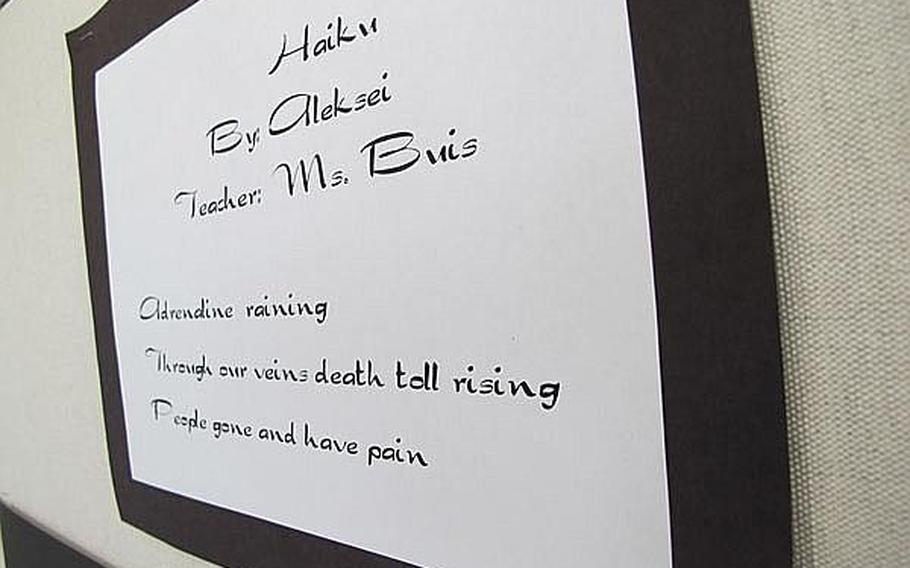 Haiku
By: Aleksei
Teacher: Ms. Buis
Adrendine raining
Through our veins death toll rising
People gone and have pain